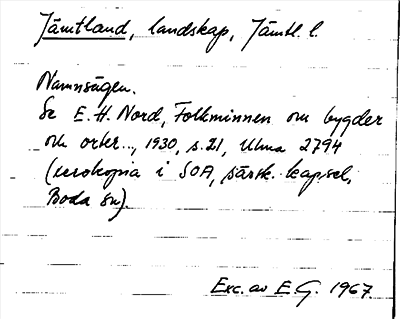 Jämtland, landskap, Jämtl. l.
Namnsägen.
Se E.H. Nord, Folkminnen om bygder
och orter..., 1930, s. 21, Ulma 2794
(xerokopia i SOA, särsk. kapsel,
Boda sn).
Exc. av E.G. 1967.